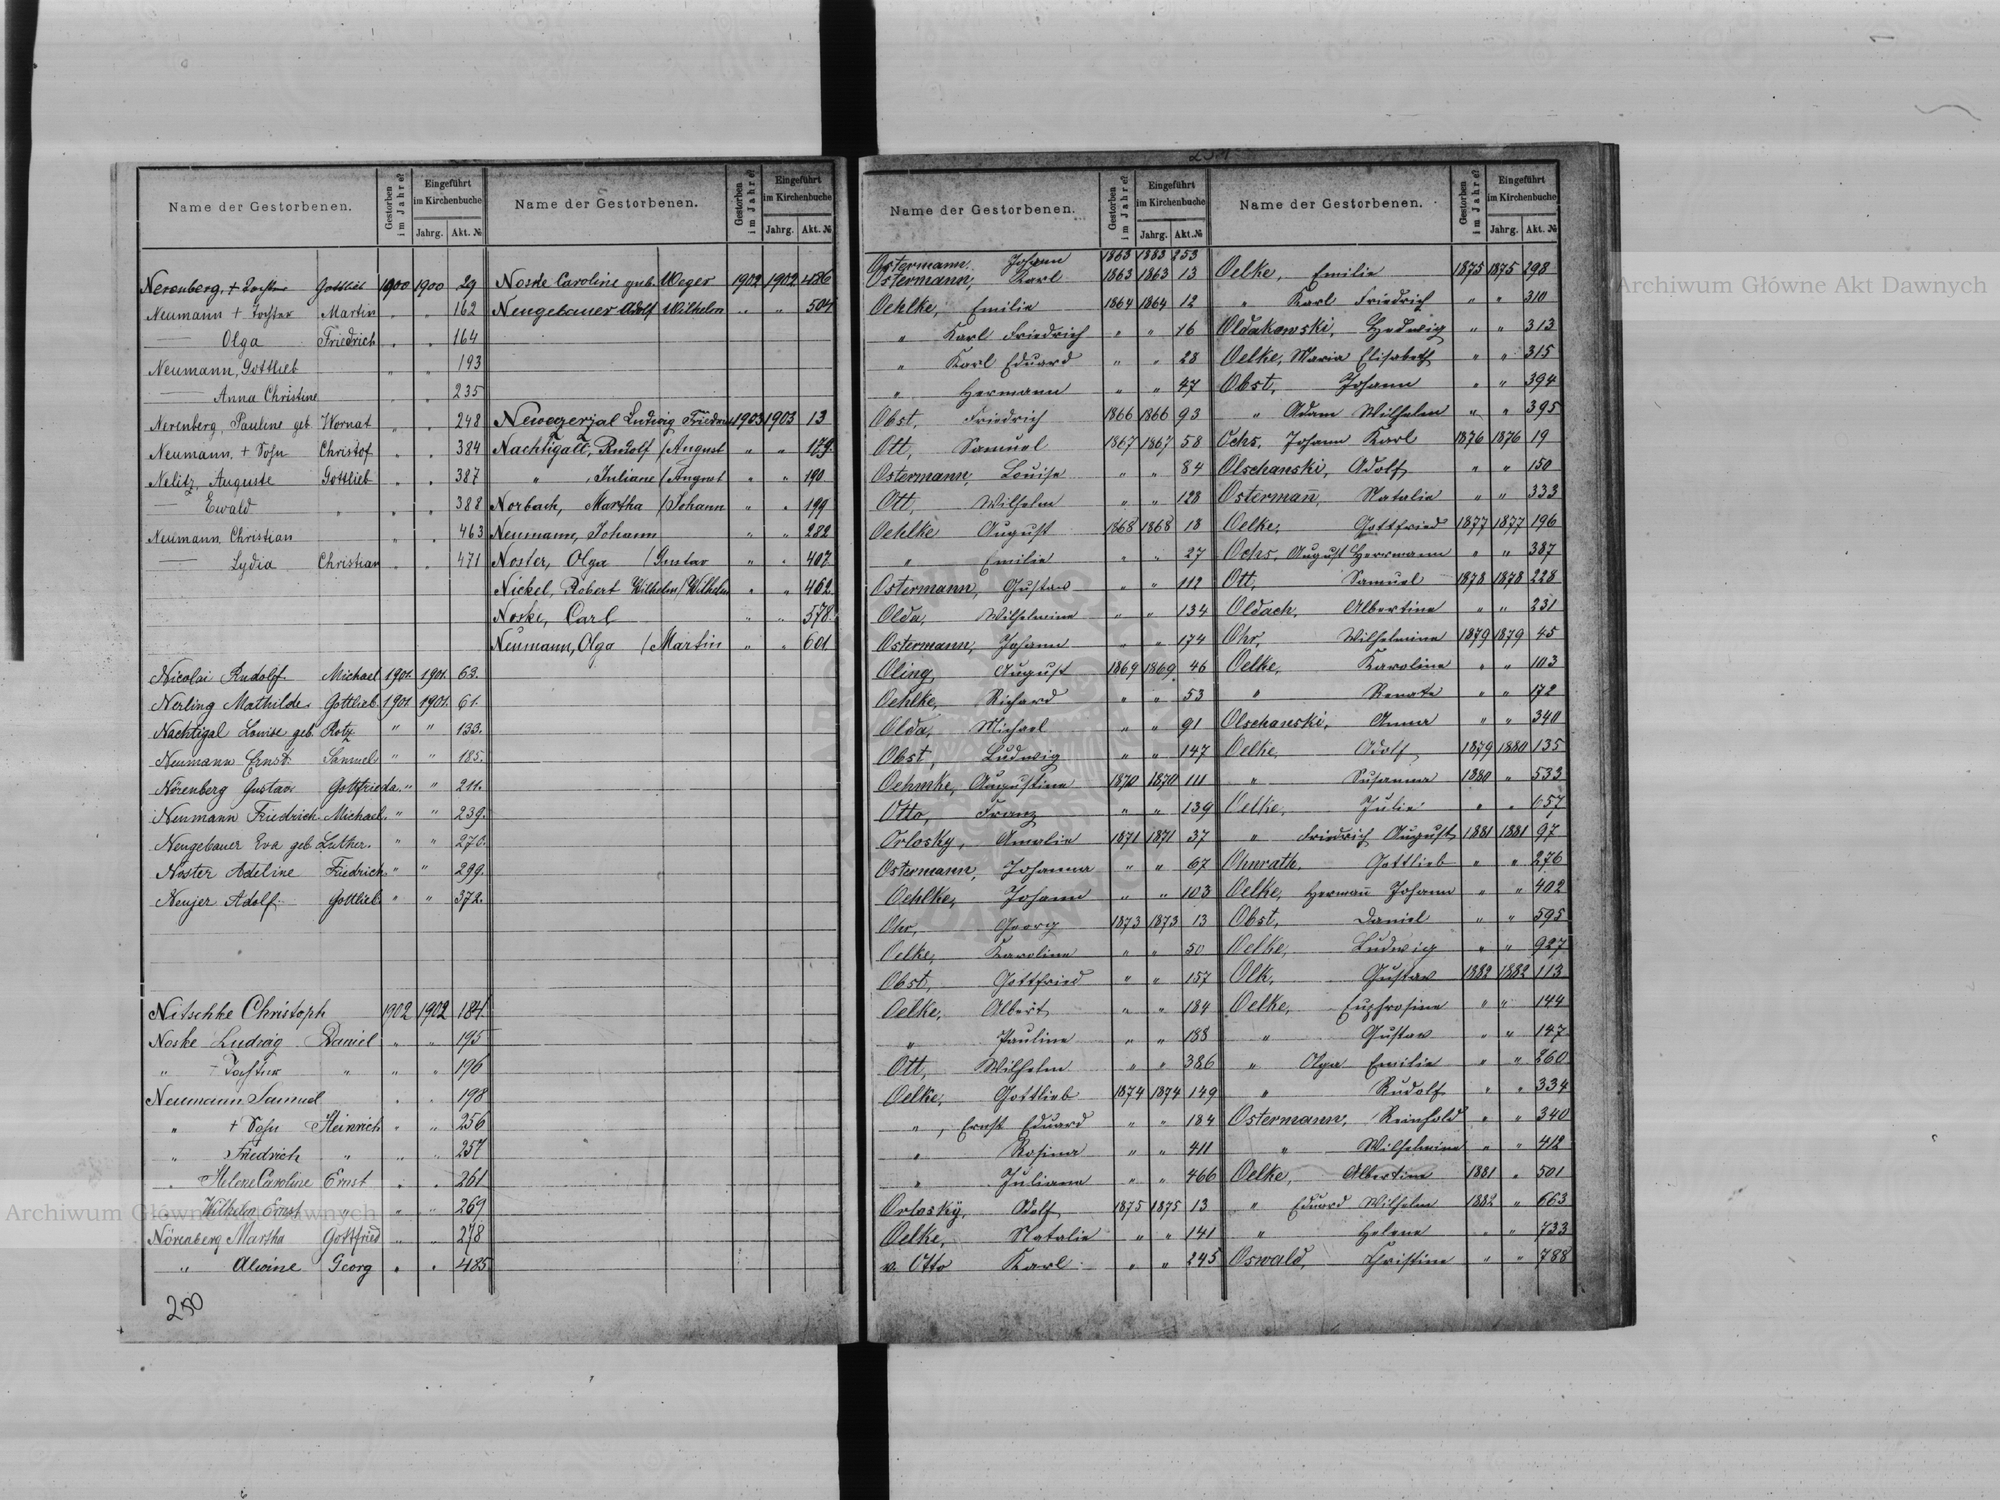 Archiwum Główne Akt Dawnych
Name der Gestorbenen. Gestorben im Jahre? Eingeführt im Kirchenbuche Jahrg. Akt. №
Nerenberg, + Tochter Gottlieb 1900 1900 29
Neumann + Tochter Martin " " 162
— Olga Friedrich " " 164
Neumann, Gottlieb " " 193
— Anna Christine " " 235
Nerenberg, Pauline geb. Wornat " " 248
Neumann, + Sohn Christof " " 384
Nelitz, Auguste Gottlieb " " 387
— Ewald " " " 388
Neumann Christian " " 463
— Lydia Christian " " 471
Nicolai Rudolf Michael 1901. 1901. 63.
Nerling Mathilde Gottlieb 1901 1901. 61.
Nachtigal Louise geb. Rotz " " 133.
Neumann Ernst Samuel " " 185.
Nörenberg Gustav Gottfried " " 211.
Neumann Friedrich Michael. " " 239.
Neugebauer Eva geb. Luther. " " 270.
Noster Adeline Friedrich " " 299.
Neujer Adolf Gottlieb " " 372.
Nitschke Christoph 1902 1902 184.
Noske Ludwig Daniel " " 195
" + Tochter " " " 196
Neumann Samuel " " 198
" + Sohn Heinrich " " 256
" Friedrich " " " 257
" Helene Caroline Ernst " " 261
— Wilhelm Ernst " " " 269
Nörenberg Martha Gottfried " " 278
" Alwine Georg " " 485
250
Name der Gestorbenen. Gestorben im Jahre? Eingeführt im Kirchenbuche Jahrg. Akt. №
Noske Caroline geb. Weger 1902 1902 486
Neugebauer Adolf Wilhelm " " 504
13
Nachtigall, Rudolf / August " " 179.
" , Juliane / August " " 190.
Norbach, Martha / Johann " " 199
Neumann, Johann " " 282
Noster, Olga / Gustav " " 407.
Nickel, Robert Wilhelm / Wilhelm " " 462
Noske, Carl " " 578.
Neumann, Olga / Martin " " 601
Name der Gestorbenen. Gestorben im Jahre? Eingeführt im Kirchenbuche Jahrg. Akt. №
Ostermann Johann 1863 1883 253
Ostermann, Karl 1863 1863 13
Oehlke, Emilie 1864 1864 12
" Karl Friedrich " " 16
" Karl Eduard " " 28
" Hermann " " 47
Obst, Friedrich 1866 1866 93
Ott, Samuel 1867 1867 58
Ostermann, Louise " " 84
Ott, Wilhelm " " 128
Oehlke August 1868 1868 18
" Emilie " " 27
Ostermann, Gustav " " 112
Olda, Wilhelmine " " 134
Ostermann, Johann " " 174
Oling, August 1869 1869 46
Oehlke, Richard " " 53
Olda, Michael " " 91
Obst, Ludwig " " 147
Oehmke, Augustine 1870 1870 111
Otto, Franz " " 139
Orlosky, Amalie 1871 1871 37
Ostermann, Johanna " " 67
Oehlke, Johann " " 103
Ohr, Georg 1873 1873 13
Oelke, Karoline " " 50
Obst, Gottfried " " 157
Oelke, Albert " " 184
" Pauline " " 188
Ott, Wilhelm " " 386
Oelke, Gottlieb 1874 1874 149
" , Ernst Eduard " " 184
" Rosina " " 411
" Juliana " " 466
Orlosky, Adolf 1875 1875 13
Oelke, Natalie " " 141
v. Otto Karl " " 245
Name der Gestorbenen. Gestorben im Jahre? Eingeführt im Kirchenbuche Jahrg. Akt. №
Oelke, Emilie 1875 1875 298
" Karl Friedrich " " 310
Oldakowski, Hedwig " " 313
Oelke, Maria Elisabeth " " 315
Obst, Johann " " 394
" Adam Wilhelm " " 395
Ochs, Johann Karl 1876 1876 19
Olschanski, Adolf " " 150
Ostermañ, Natalie " " 333
Oelke, Gottfried 1877 1877 196
Ochs, August Hermann " " 387
Ott, Samuel 1878 1878 228
Oldach, Albertine " " 231
Ohr, Wilhelmine 1879 1879 45
Oelke, Karoline " " 103
" Renate " " 172
Olschanski, Anna " " 340
Oelke Adolf 1879 1880 135
" Susanna 1880 " 533
Oelke, Julie " " 657
" Friedrich August 1881 1881 97
Ohnrath, Gottlieb " " 276
Oelke, Hermañ Johann " " 402
Obst, Daniel " " 595
Oelke, Ludwig " " 927
Olk, Gustav 1882 1882 113
Oelke, Euphrosine " " 144
" Gustav " " 147
" Olga Emilie " " 260
" Rudolf " " 334
Ostermann, Reinhold " " 340
" Wilhelmine " " 412
Oelke, Albertine 1881 " 501
" Eduard Wilhelm 1882 " 663
" Helene " " 733
Oswald, Christine " " 788
Archiwum Główne Akt Dawnych